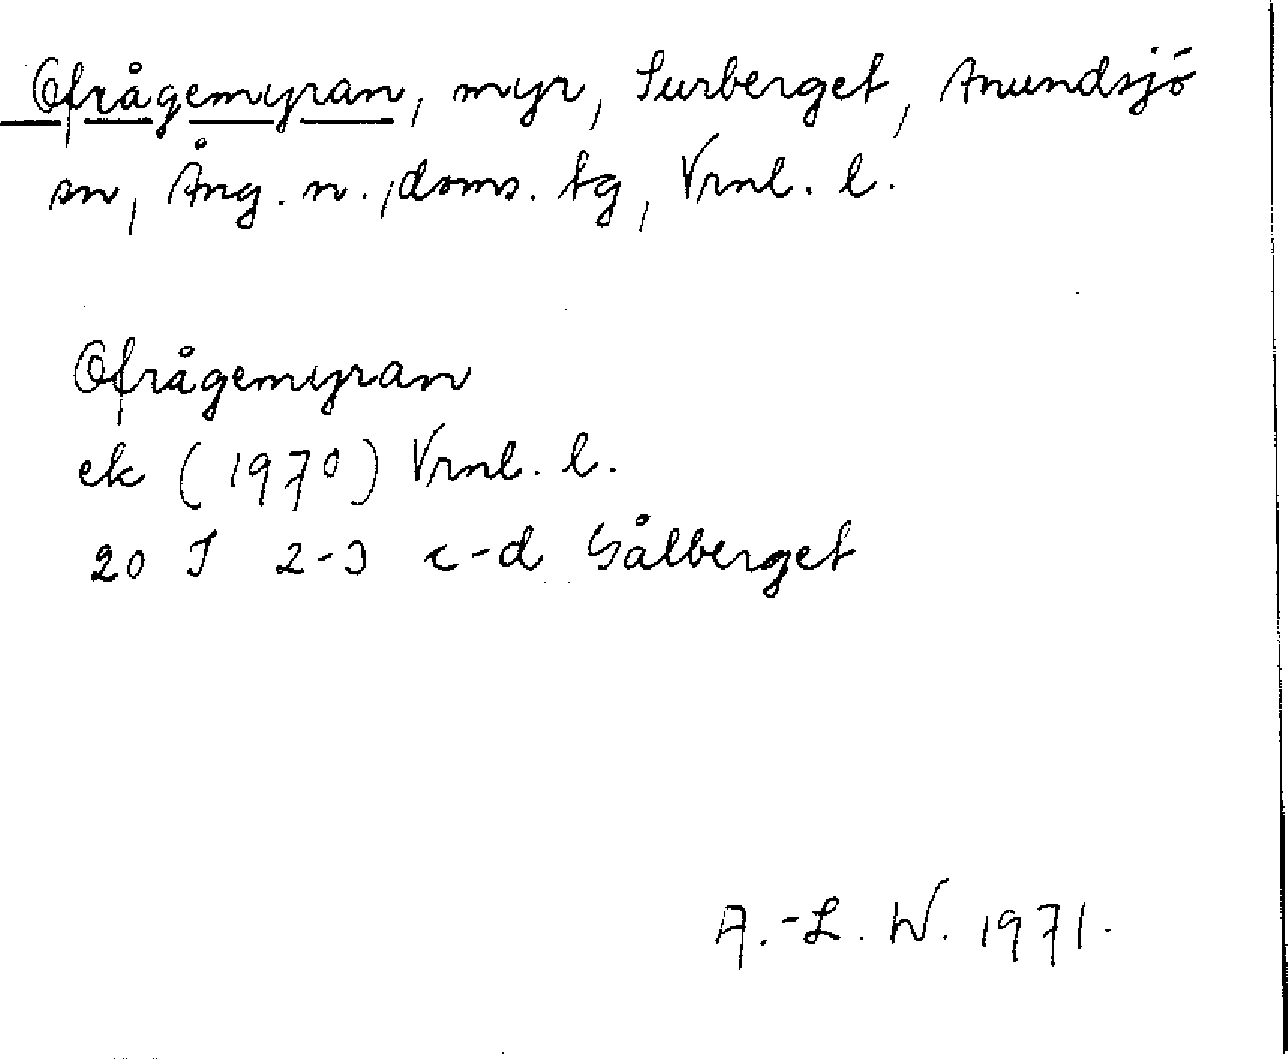 Ofrågemyran, myr, Surberget, Anundsjö
sn, Ång. n., doms. tg, Vrnl. l.
Ofrågemyran
ek (1970) Vrnl. l.
20 J 2-3 c-d Sålberget
A.-L. W. 1971.